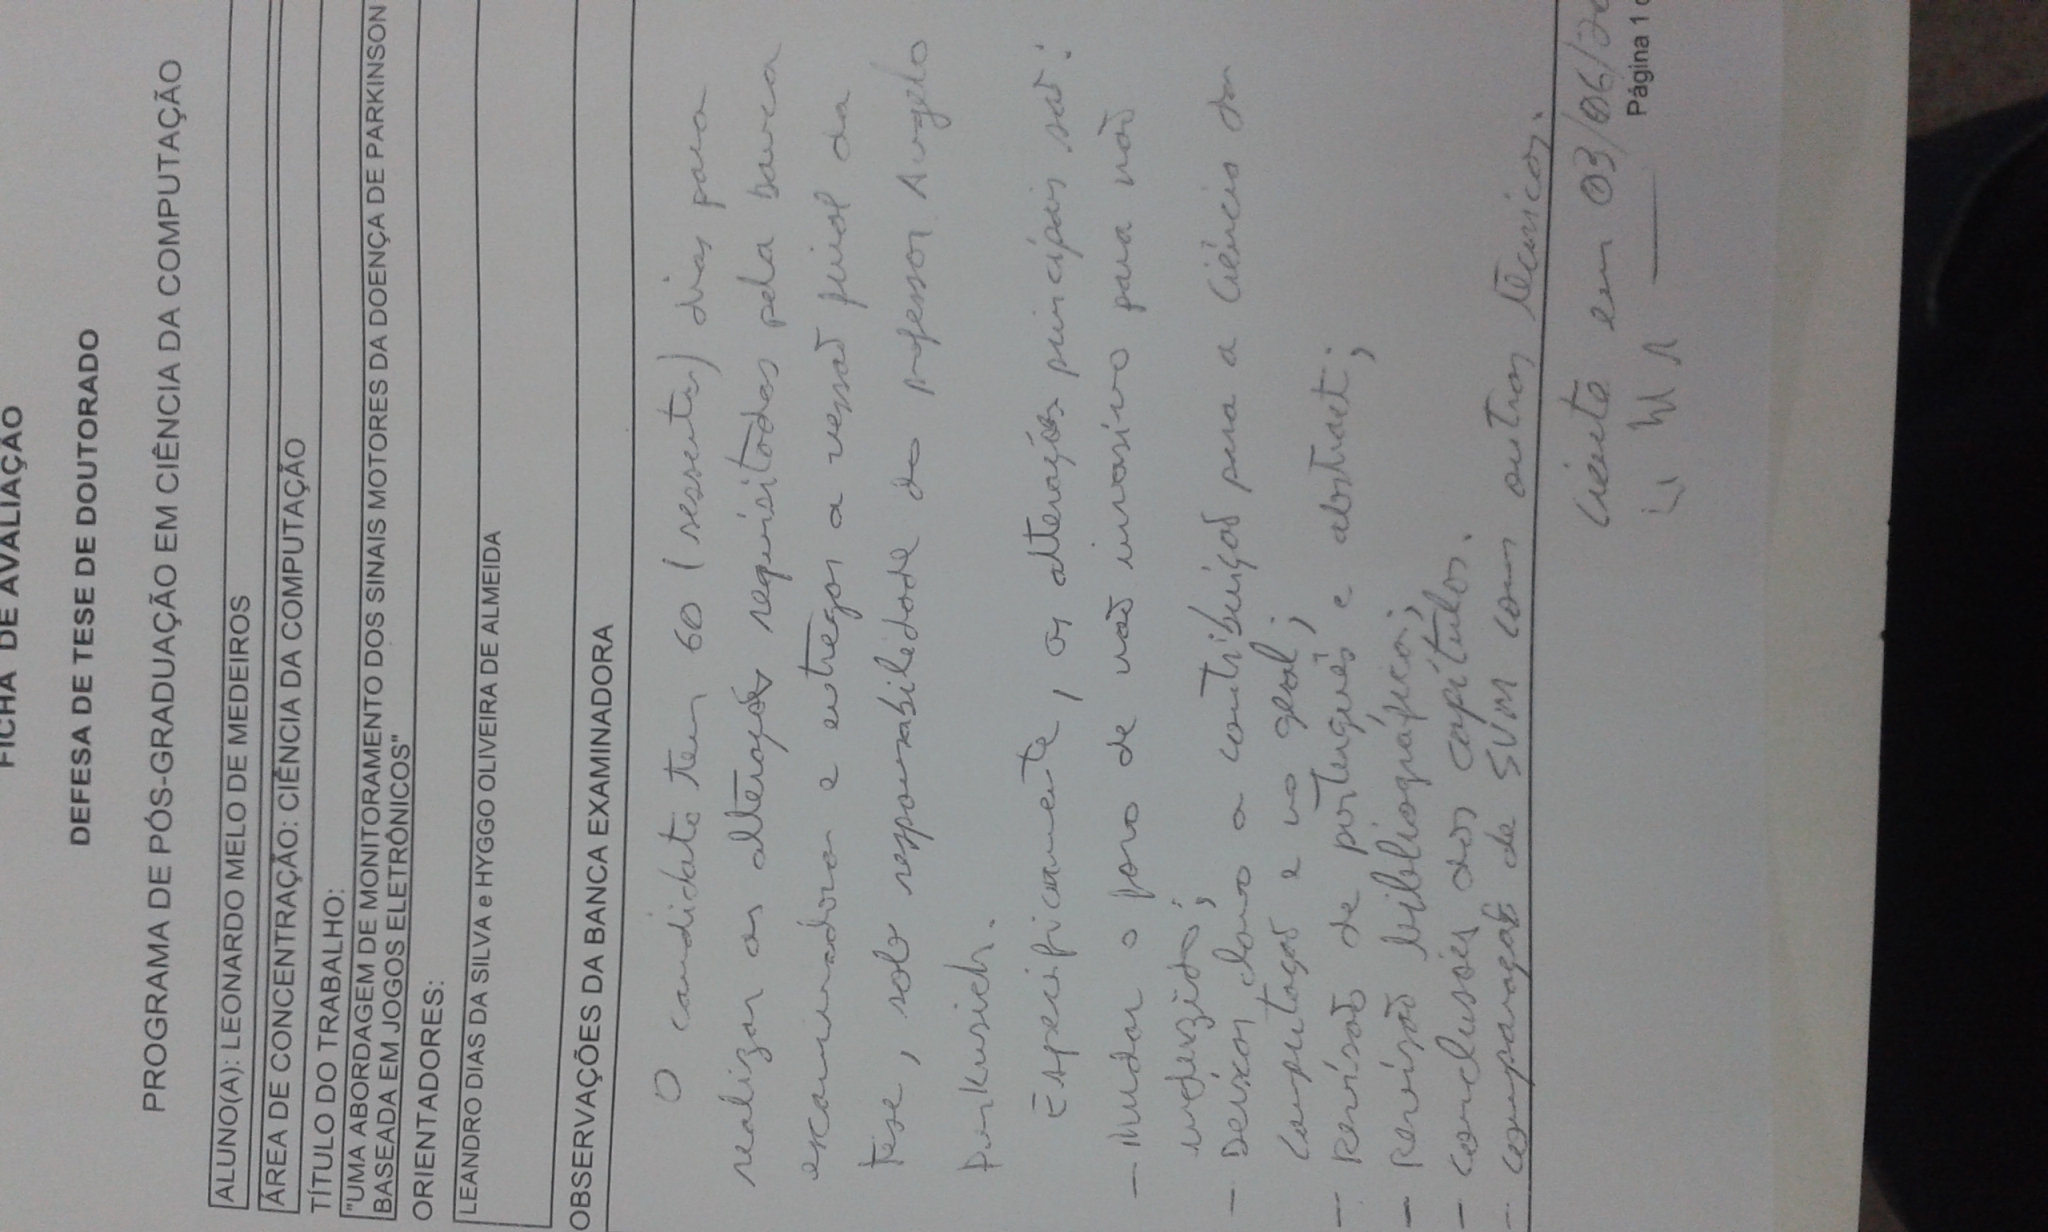 FICHA DE AVALIAÇÃO
DEFESA DE TESE DE DOUTORADO
PROGRAMA DE PÓS-GRADUAÇÃO EM CIÊNCIA DA COMPUTAÇÃO
ALUNO(A): LEONARDO MELO DE MEDEIROS
ÁREA DE CONCENTRAÇÃO: CIÊNCIA DA COMPUTAÇÃO
TÍTULO DO TRABALHO:
"UMA ABORDAGEM DE MONITORAMENTO DOS SINAIS MOTORES DA DOENÇA DE PARKINSON
BASEADA EM JOGOS ELETRÔNICOS"
ORIENTADORES:
LEANDRO DIAS DA SILVA e HYGGO OLIVEIRA DE ALMEIDA
OBSERVAÇÕES DA BANCA EXAMINADORA
O candidato tem 60 (sessenta) dias para
realizar as alterações requisitadas pela banca
examinadora e entregar a versão final da
tese, sob responsabilidade do professor Angelo
Perkusich.
Especificamente, as alterações principais são:
- Mudar o foco de não invasivo para não
induzido;
- Deixar claro a contribuição para a Ciência da
Computação e no geral;
- Revisão de português e abstract;
- Revisão bibliográfica;
- Conclusões dos capítulos.
- comparação de SVM com outras técnicas.
Ciente em 03/06/20
Página 1